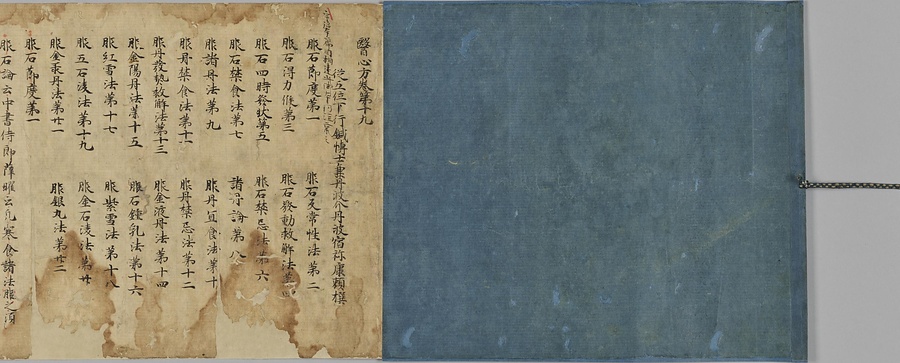 醫心方卷第十九
從五位下行鍼博士兼丹波介丹波宿祢康頼撰
服石節度第一 服石反常性法第二
服石得力候第三 服石發動救解法第四
服石四時發狀第五 服石禁忌法第六
服石禁食法第七 諸丹論第八
服諸丹法第九 服丹宜食法第十
服丹禁食法第十一 服丹禁忌法第十二
服丹發熱救解法第十三 服金液丹法第十四
服金陽丹法第十五 服石鍾乳法第十六
服紅雪法第十七 服紫雪法第十八
服五石淩法第十九 服金石淩法第廿
服金汞丹法第廿一 服銀丸法第廿二
服石節度第一
服石論云中書侍郎薛曜云凡寒食諸法服之須